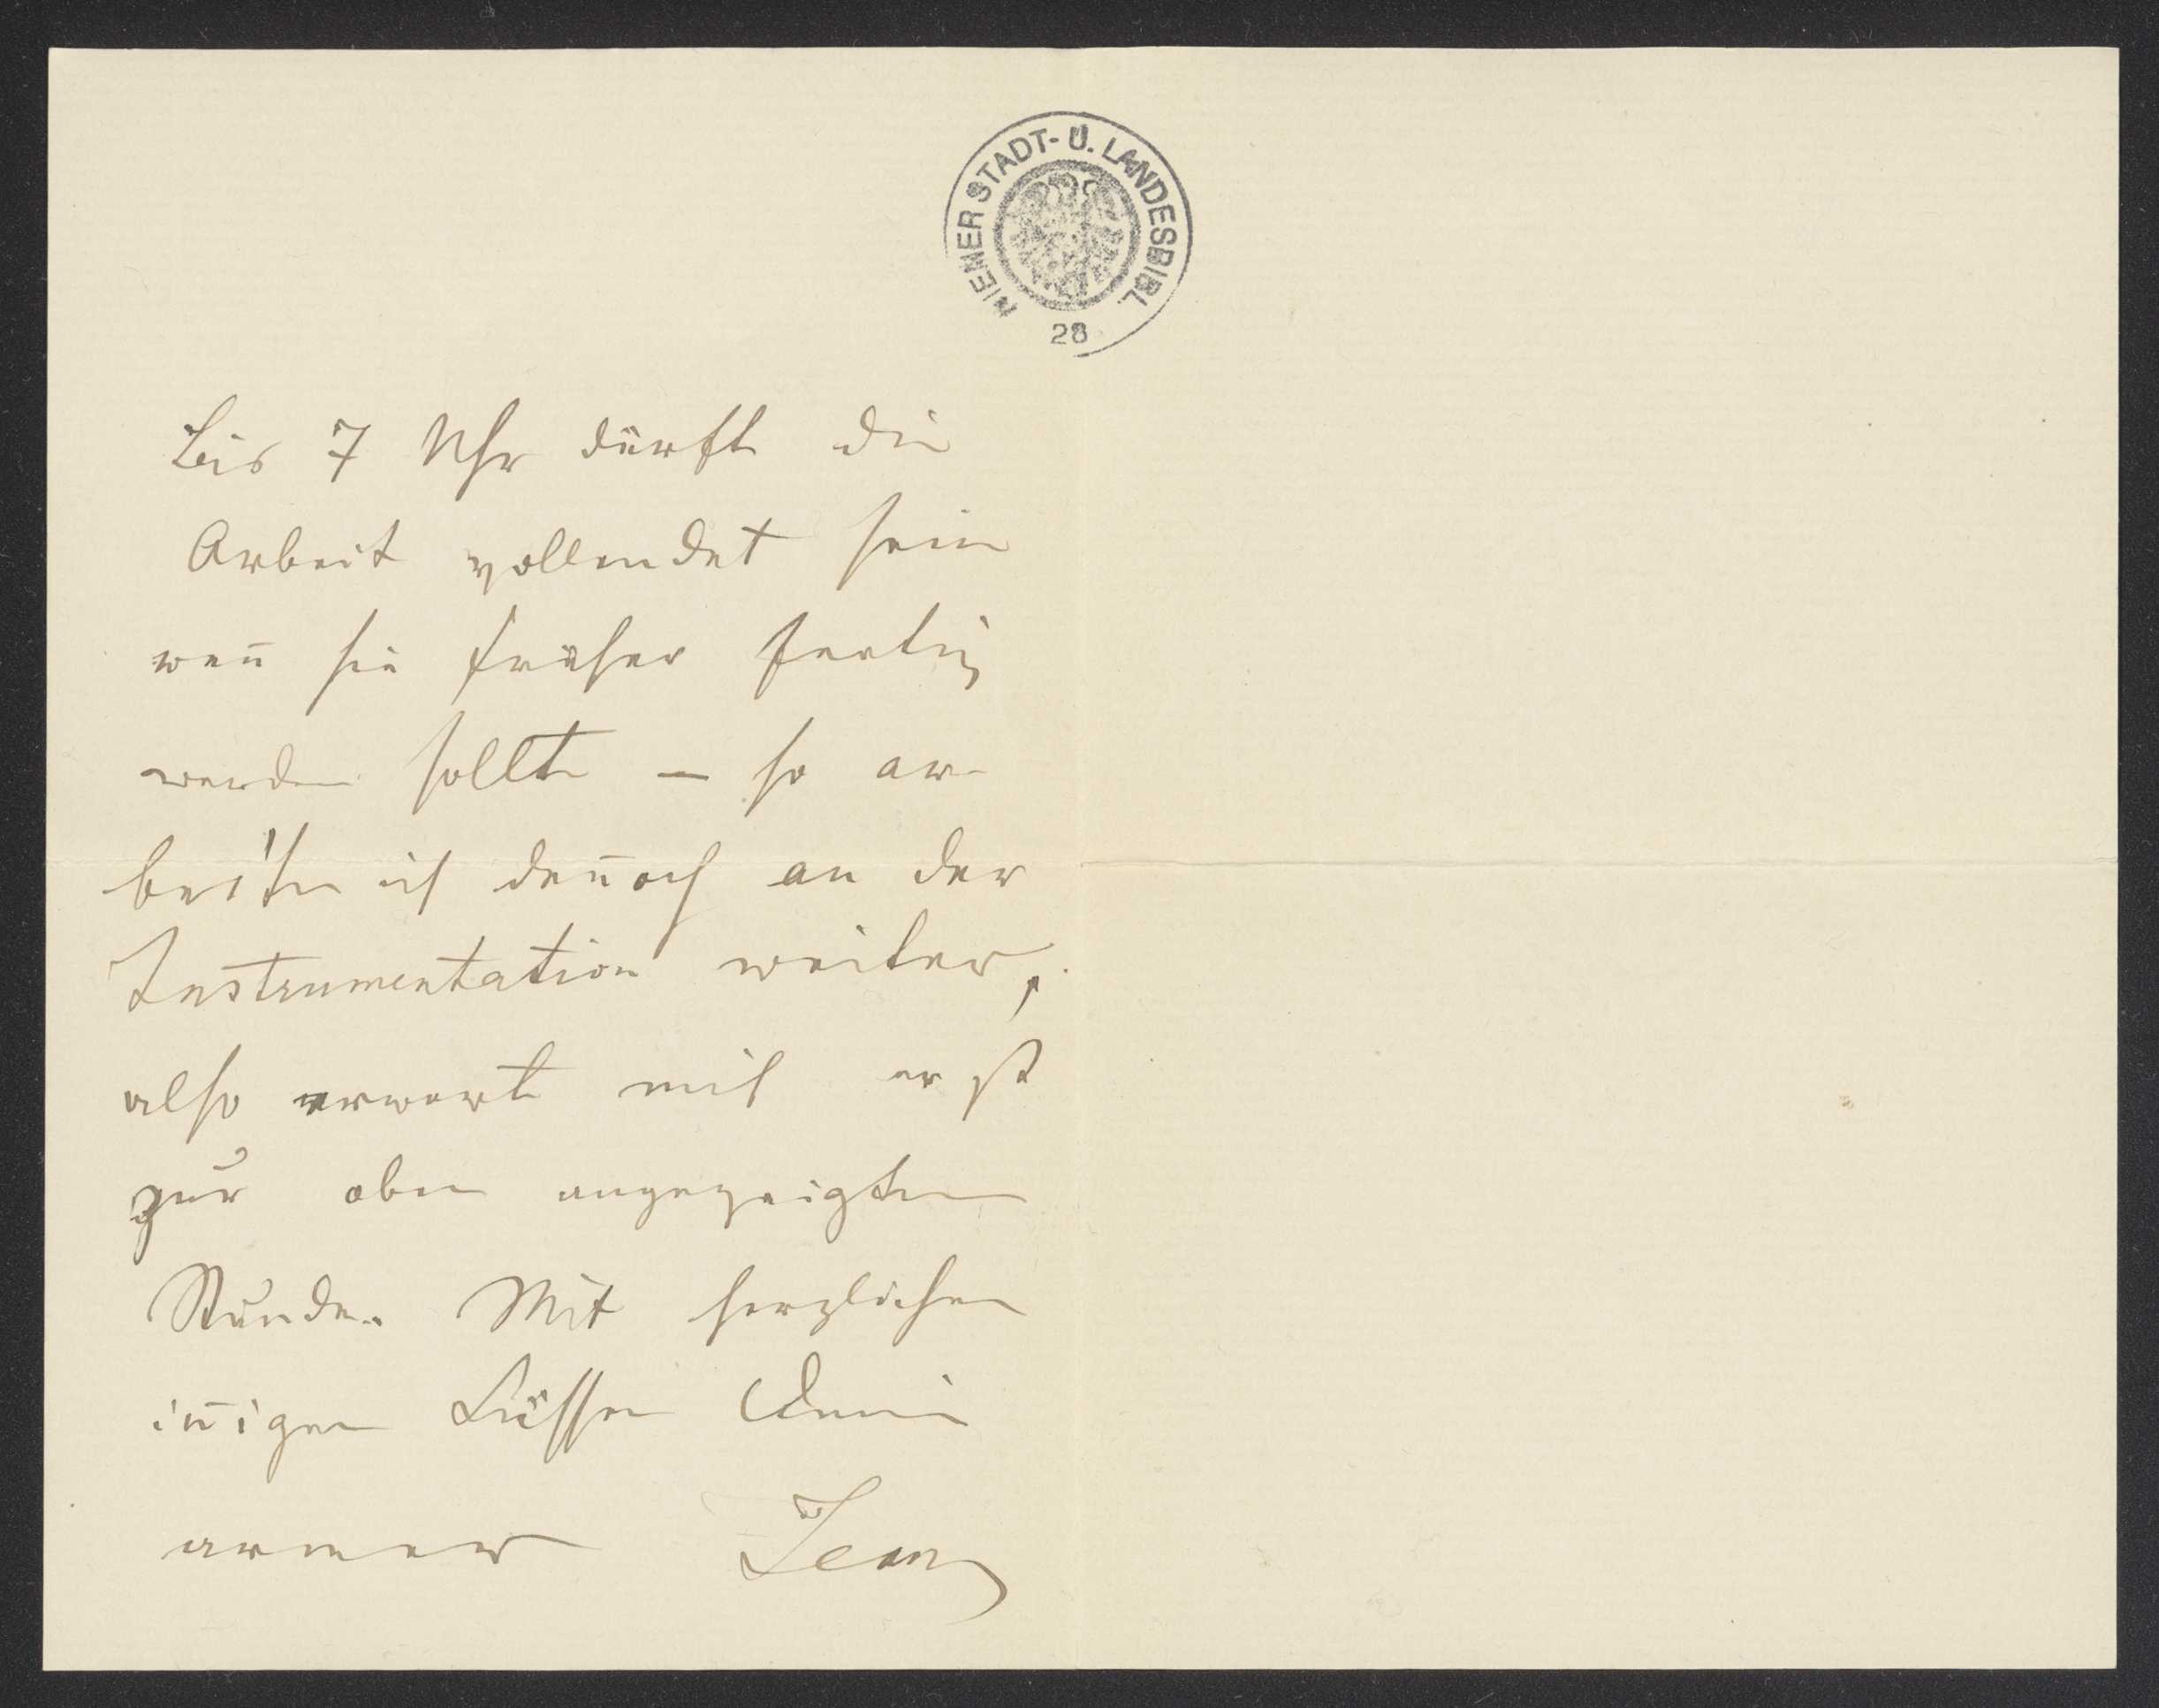 WIENER STADT- U. LANDESBIBL.
28
Bis 7 Uhr dürfte die
Arbeit vollendet sein
wen̄ sie früher fertig
werden sollte – so ar-
beite ich den̄och an der
Instrumentation weiter,
also erwarte mich erst
zur oben angezeigten
Stunde. Mit herzlichen
in̄igen Küssen Dein
armer Jean